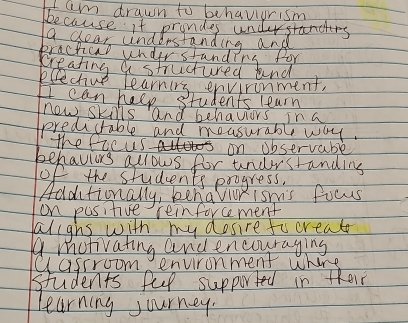 I am drawn to behaviorism
because it provides understanding
a clear understanding and
practical understanding for
creating a structured and
effective learning environment.
I can help students learn
new skills and behaviors in a
predictable and measurable way.
The focus allows on observable
behaviors allows for understanding
of the student's progress.
Additionally, behaviorism's focus
on positive reinforcement
aligns with my desire to create
a motivating and encouraging
classroom environment where
students feel supported in their
learning journey.